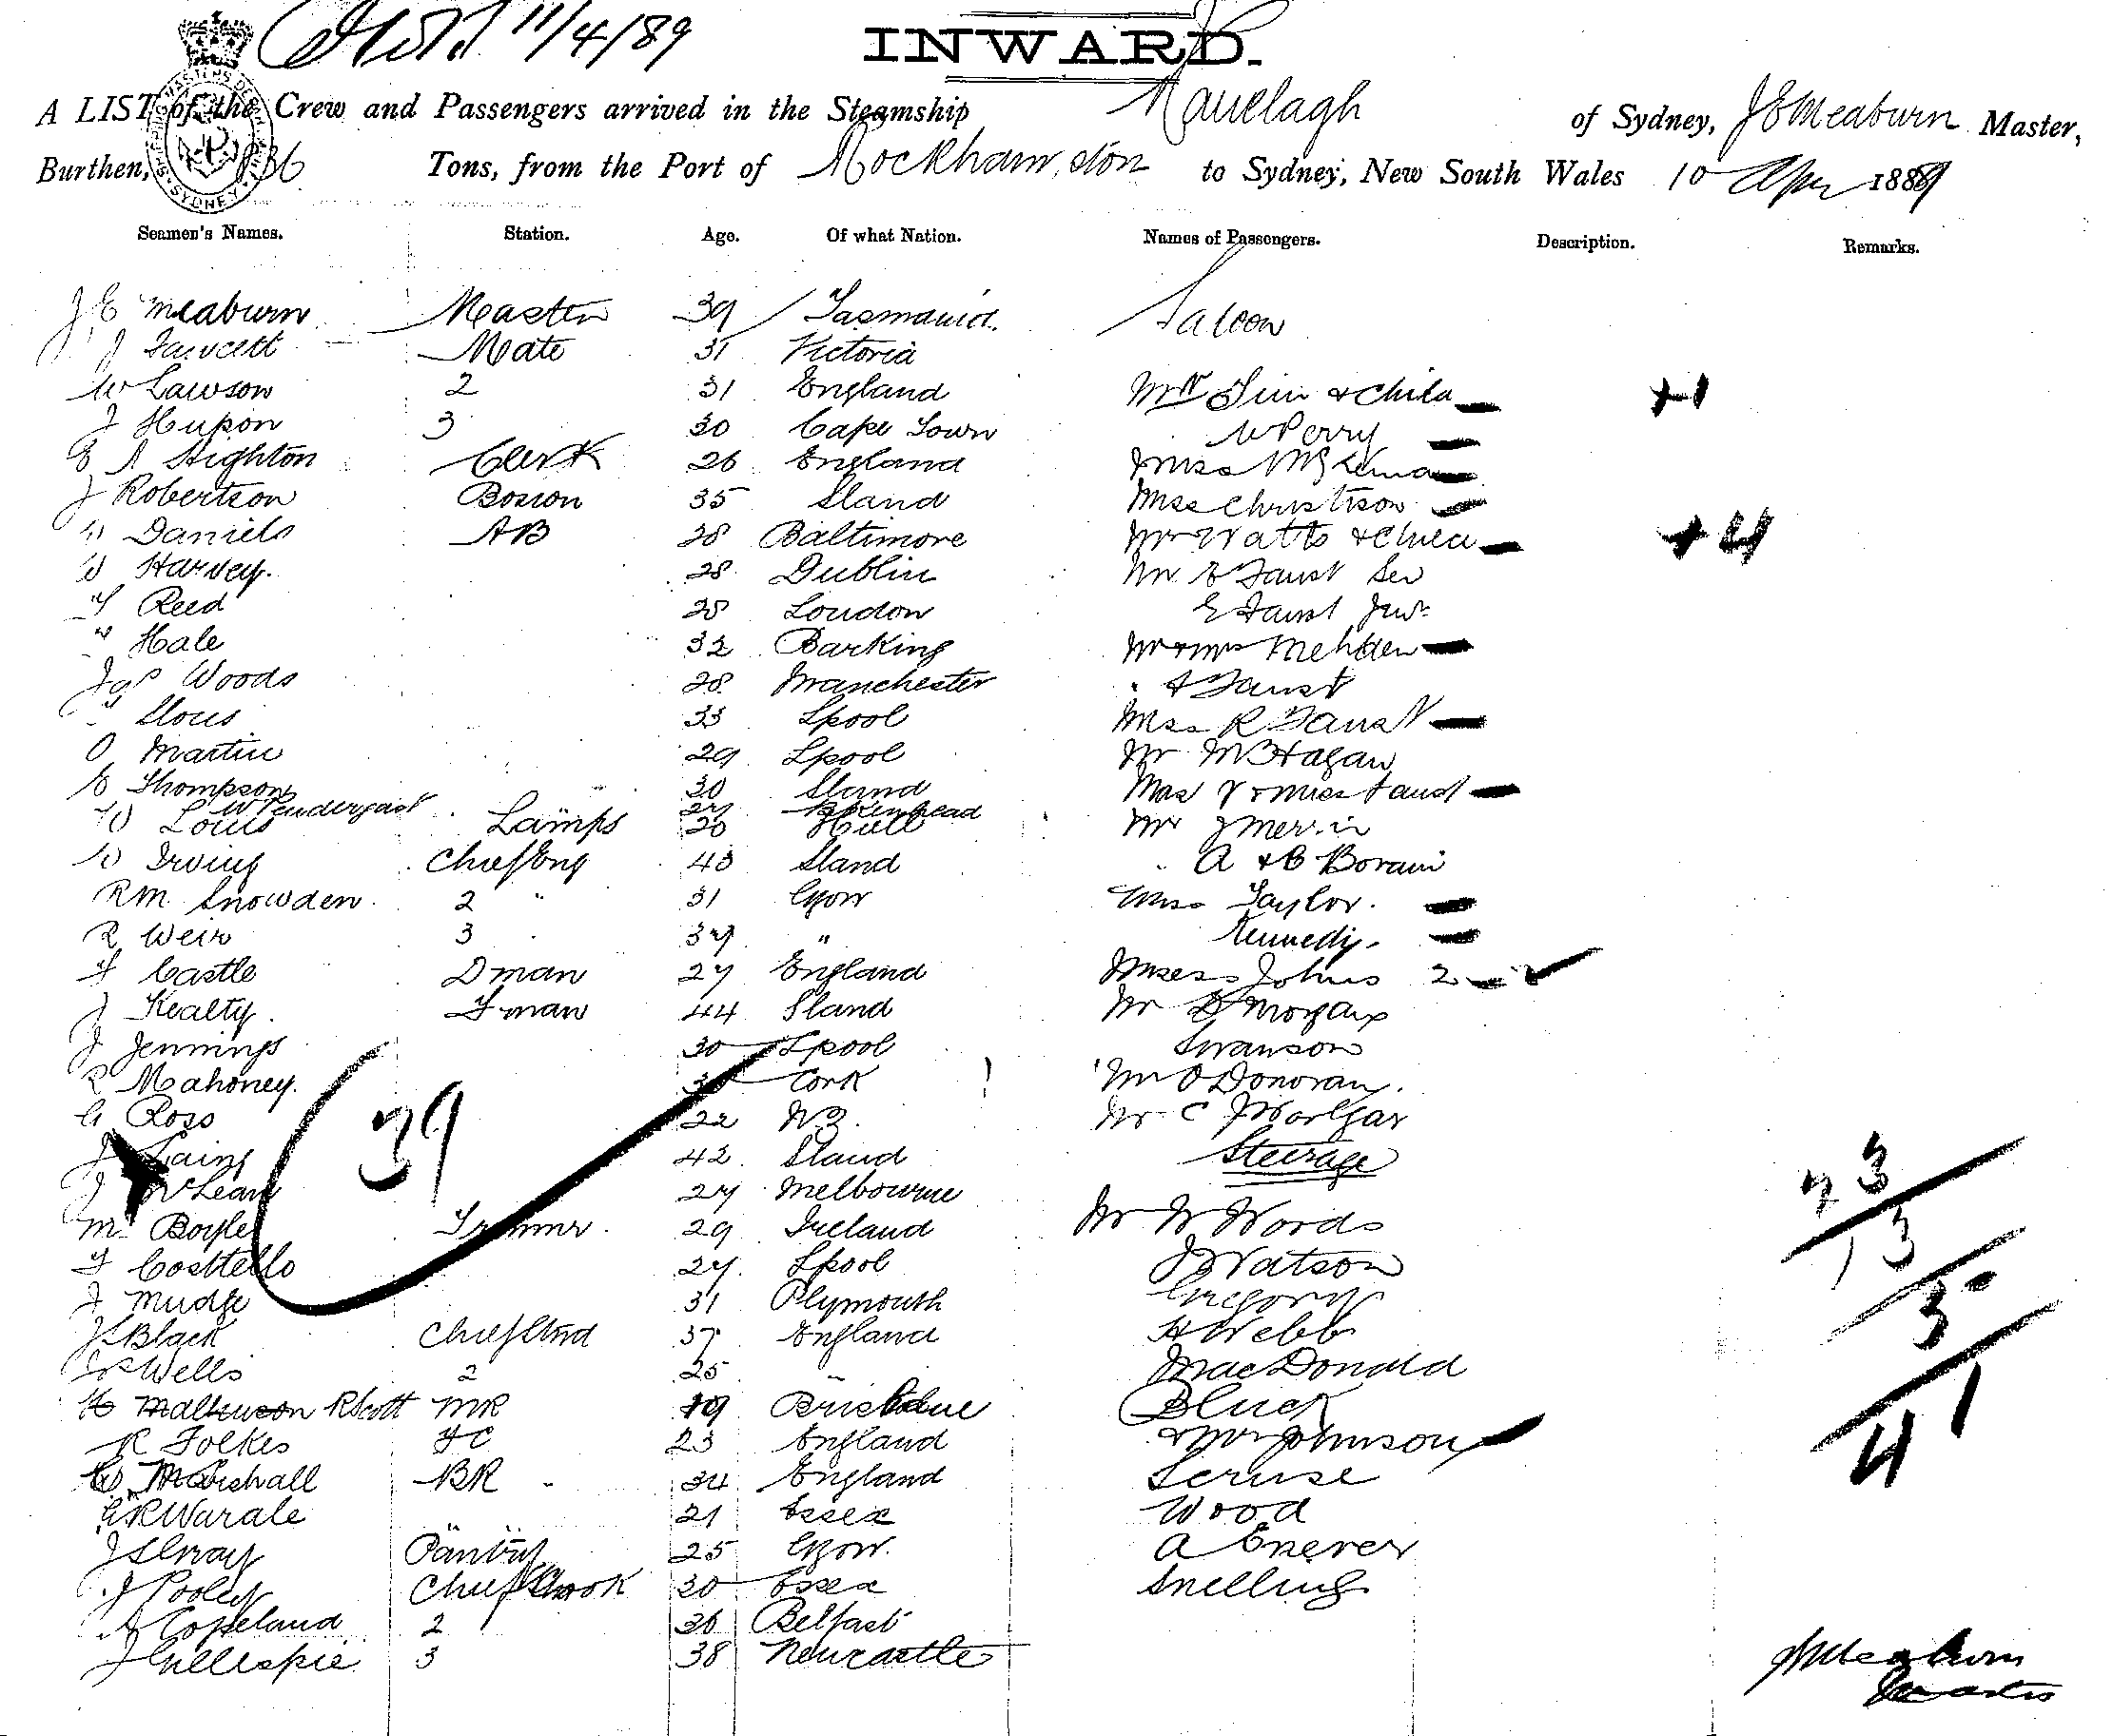 11/4/89
INWARD.
A LIST of the Crew and Passengers arrived in the Steamship Ranelagh of Sydney, J E Meaburn Master,
Burthen, 836 Tons, from the Port of Rockhampton to Sydney, New South Wales 10 Apr 1889
Seamen's Names. Station. Age. Of what Nation. Names of Passengers. Description. Remarks.
J E Meaburn Master 39 Tasmania Saloon
J Fawcett Mate 31 Victoria
W Lawson 2 31 England & Child +1
J Hupon 3 30 Cape Town Perry
E A Highton Clerk 26 England Miss
J Robertson Bosson 35 Sland Miss Christison
Daniels AB 28 Baltimore Watts & Child +4
Harvey. 28 Dublin Mr E Faust Sen
T Reed 28 London E Faust Jun
" Hale 32 Barking Mehden
Jas Woods 28 Manchester A Faust
33 Lpool Miss R Faust
O Martin 29 Lpool Mr Hagan
Thompson 30 Sland Faust
W Pendergast 27 Bkenhead
Louis Lamps 20 Hull Mr J
Irving Chief Eng 43 Sland A & B
RM Snowden 2 " 31 Ggow Miss Taylor.
R Weir 3 37 " Kennedy
F Castle Dman 27 England Misses Johns 2
J Kealty. Fman 44 Sland Mr D Morgan
J Jennings 30 Lpool Swanson
R Mahoney. Cork Mr O Donovan.
G Ross 22 NZ. Mr C J
39
J Laing 42 Sland Steerage
J McLean 27 Melbourne 23
M Boyle Trimmr. 29 Ireland Mr W Woods 13
F Costtello 27. Lpool J Watson
J Mudge 31 Plymouth Gregory 3
J Black Chief Strd 37 England H Webb
Wells 2 25 " MacDonald 1
Malkinson R Scott MR 19 Brisbane Bluck
R Folkes FC 23 England & Mrs Johnson 41
Marshall BR 34 England Scruse
G R Warale 21 Essex Wood
Pantry 25 Ggow. A Enever
J Pooley Chief Cook 30 Essex Snelling
A Copeland 2 36 Belfast
J Gillespie 3 38 Newcastle
J E Meaburn
Master